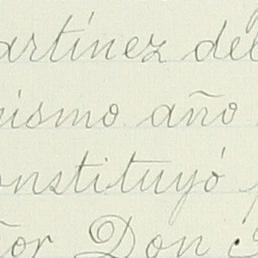 artínez del
ismo año
onstituyó
or Don